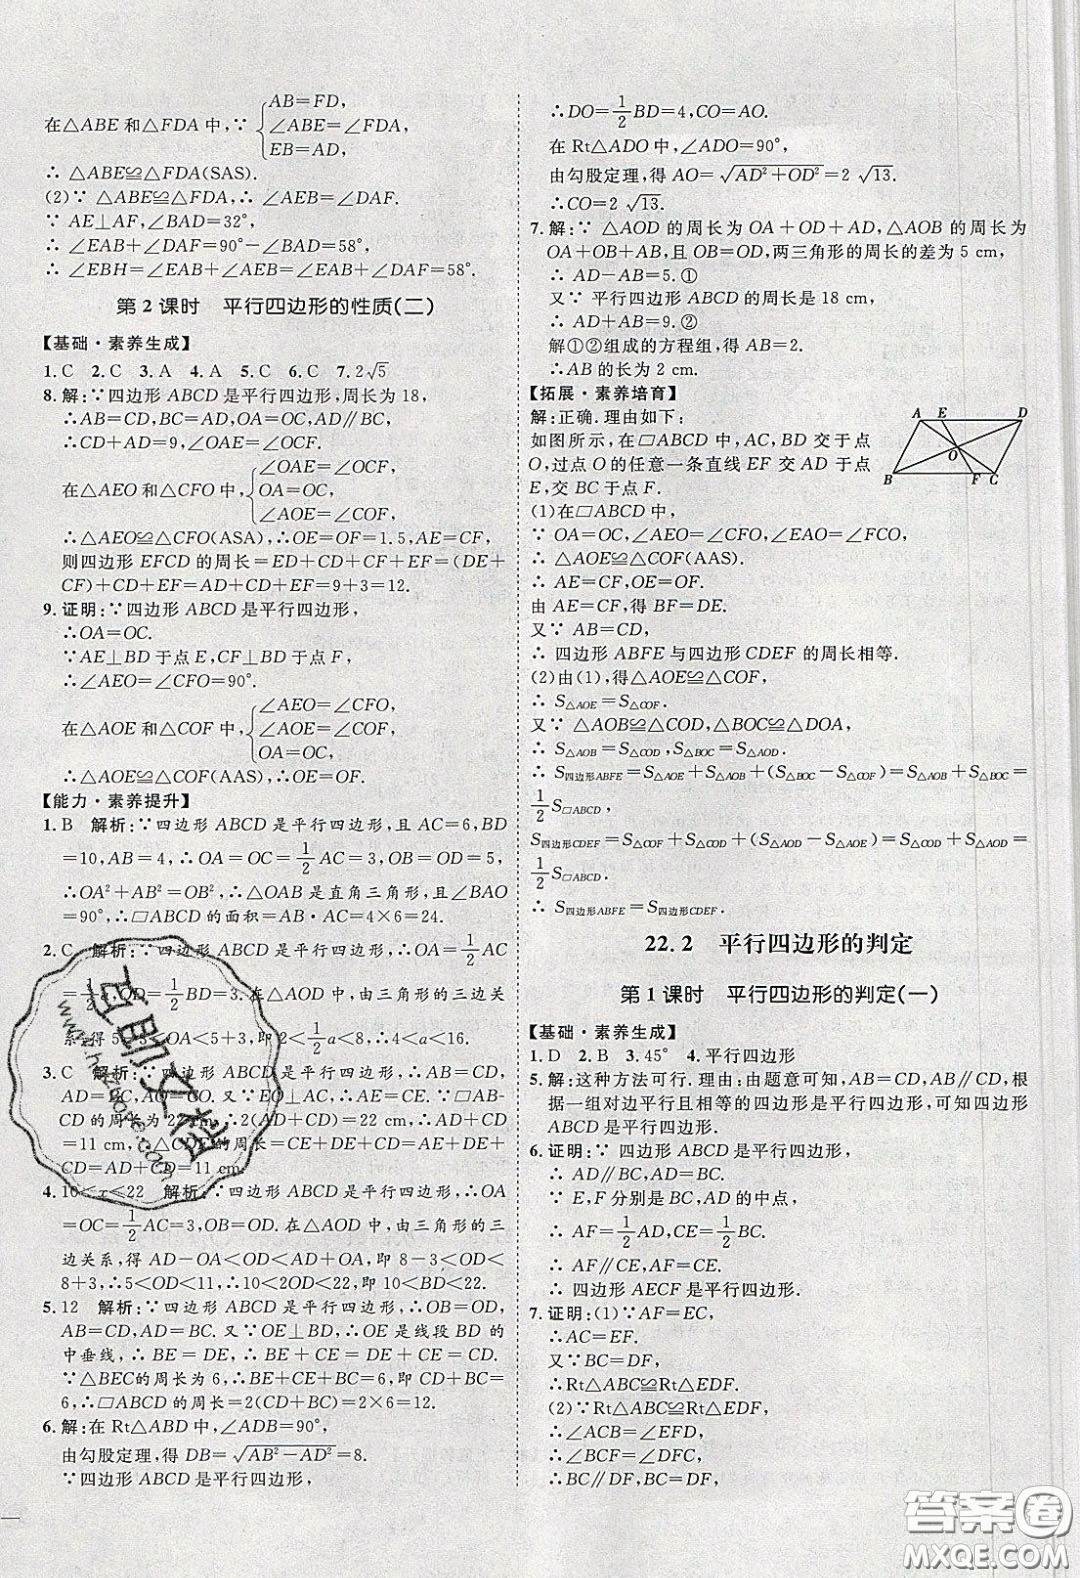 在△ABE和△FDA中,∵ { AB=FD,
∠ABE=∠FDA,
EB=AD,
∴ △ABE≌△FDA(SAS).
(2)∵ △ABE≌△FDA,∴ ∠AEB=∠DAF.
∵ AE⊥AF,∠BAD=32°,
∴ ∠EAB+∠DAF=90°-∠BAD=58°,
∴ ∠EBH=∠EAB+∠AEB=∠EAB+∠DAF=58°.
第2课时 平行四边形的性质(二)
【基础·素养生成】
1.C 2.C 3.A 4.A 5.C 6.C 7.2√5
8.解:∵四边形ABCD是平行四边形,周长为18,
∴AB=CD,BC=AD,OA=OC,AD∥BC,
∴CD+AD=9,∠OAE=∠OCF,
在△AEO和△CFO中, { ∠OAE=∠OCF,
OA=OC,
∠AOE=∠COF,
∴△AEO≌△CFO(ASA),∴OE=OF=1.5,AE=CF,
则四边形EFCD的周长=ED+CD+CF+EF=(DE+
CF)+CD+EF=AD+CD+EF=9+3=12.
9.证明:∵四边形ABCD是平行四边形,
∴OA=OC.
∵AE⊥BD于点E,CF⊥BD于点F,
∴∠AEO=∠CFO=90°.
在△AOE和△COF中, { ∠AEO=∠CFO,
∠AOE=∠COF,
OA=OC,
∴△AOE≌△COF(AAS),∴OE=OF.
【能力·素养提升】
1.B 解析:∵四边形ABCD是平行四边形,且AC=6,BD
=10,AB=4,∴OA=OC=1/2AC=3,OB=OD=5,
∴OA²+AB²=OB²,∴△OAB是直角三角形,∠BAO=
90°,∴▱ABCD的面积=AB·AC=4×6=24.
2.C 解析:∵四边形ABCD是平行四边形,∴OA=1/2AC
=1/2x,OD=1/2BD=3.在△AOD中,由三角形的三边关
系,得5-3<OA<5+3,即2<1/2a<8,∴4<a<16.
3.C 解析:∵四边形ABCD是平行四边形,∴AB=CD,
BC=AD,OA=OC.又∵EO⊥AC,∴AE=CE.∵▱AB-
CD的周长为22 cm,∴2(AD+CD)=22 cm,∴AD+CD
=11 cm,∴△CDE的周长=CE+DE+CD=AE+DE+
CD=AD+CD=11 cm.
4.10<x<22 解析:∵四边形ABCD是平行四边形,∴OA
=OC=1/2AC=3,OB=OD.在△AOD中,由三角形的三
边关系,得AD-OA<OD<AD+OA,即8-3<OD<
8+3,∴5<OD<11,∴10<2OD<22,即10<x<22.
5.12 解析:∵四边形ABCD是平行四边形,∴OB=OD,
AB=CD,AD=BC.又∵OE⊥BD,∴OE是线段BD的
中垂线,∴BE=DE,∴BE+CE=DE+CE=CD.
∵△BEC的周长为6,∴BE+CE+BC=6,即CD+BC=
6,∴▱ABCD的周长=2(CD+BC)=2×6=12.
6.解:在Rt△ABD中,∠ADB=90°,
由勾股定理,得DB=√(AB²-AD²)=8.
∵四边形ABCD是平行四边形,
∴DO=1/2BD=4,CO=AO.
在Rt△ADO中,∠ADO=90°,
由勾股定理,得AO=√(AD²+OD²)=2√13.
∴CO=2√13.
7.解:∵ △AOD的周长为OA+OD+AD,△AOB的周长为
OA+OB+AB,且OB=OD,两三角形的周长的差为5 cm,
∴ AD-AB=5.①
又∵ 平行四边形ABCD的周长是18 cm,
∴ AD+AB=9.②
解①②组成的方程组,得AB=2.
∴AB的长为2 cm.
【拓展·素养培育】
解:正确.理由如下:
如图所示,在▱ABCD中,AC,BD交于点
O,过点O的任意一条直线EF交AD于点
E,交BC于点F.
A E D
O
B F C
(1)在▱ABCD中,
∵ OA=OC,∠AEO=∠CFO,∠EAO=∠FCO,
∴ △AOE≌△COF(AAS).
∴ AE=CF,OE=OF.
由AE=CF,得BF=DE.
又∵ AB=CD,
∴ 四边形ABFE与四边形CDEF的周长相等.
(2)由(1),得△AOE≌△COF,
∴ S△AOE=S△COF.
又∵ △AOB≌△COD,△BOC≌△DOA,
∴ S△AOB=S△COD,S△BOC=S△AOD.
∴ S四边形ABFE=S△AOE+S△AOB+(S△BOC-S△COF)=S△AOB+S△BOC=
1/2S▱ABCD,
S四边形CDEF=S△COF+S△COD+(S△AOD-S△AOE)=S△COD+S△AOD=
1/2S▱ABCD.
∴ S四边形ABFE=S四边形CDEF.
22.2 平行四边形的判定
第1课时 平行四边形的判定(一)
【基础·素养生成】
1.D 2.B 3.45° 4.平行四边形
5.解:这种方法可行.理由:由题意可知,AB=CD,AB∥CD,根
据一组对边平行且相等的四边形是平行四边形,可知四边形
ABCD是平行四边形.
6.证明:∵ 四边形ABCD是平行四边形,
∴ AD∥BC,AD=BC.
∵ E,F分别是BC,AD的中点,
∴ AF=1/2AD,CE=1/2BC.
∴ AF∥CE,AF=CE.
∴ 四边形AECF是平行四边形.
7.证明:(1)∵AF=EC,
∴AC=EF.
又∵BC=DF,
∴Rt△ABC≌Rt△EDF.
(2)∵Rt△ABC≌Rt△EDF,
∴∠ACB=∠EFD,
∴∠BCF=∠DFC,
∴BC∥DF,BC=DF,
互助文档
www.hzuobe.com
答案卷
MXQE.COM